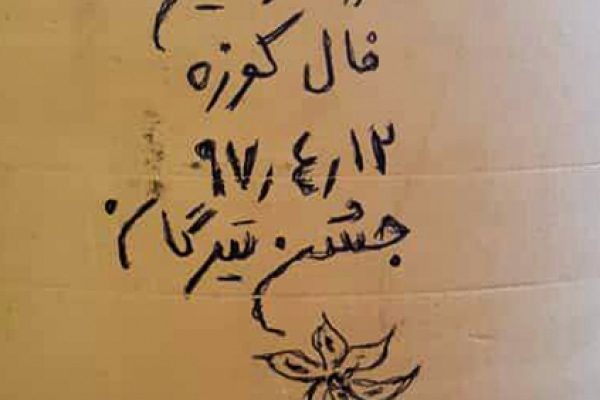 فال کوزه
۹۷٫۴٫۱۲
جشن تیرگان